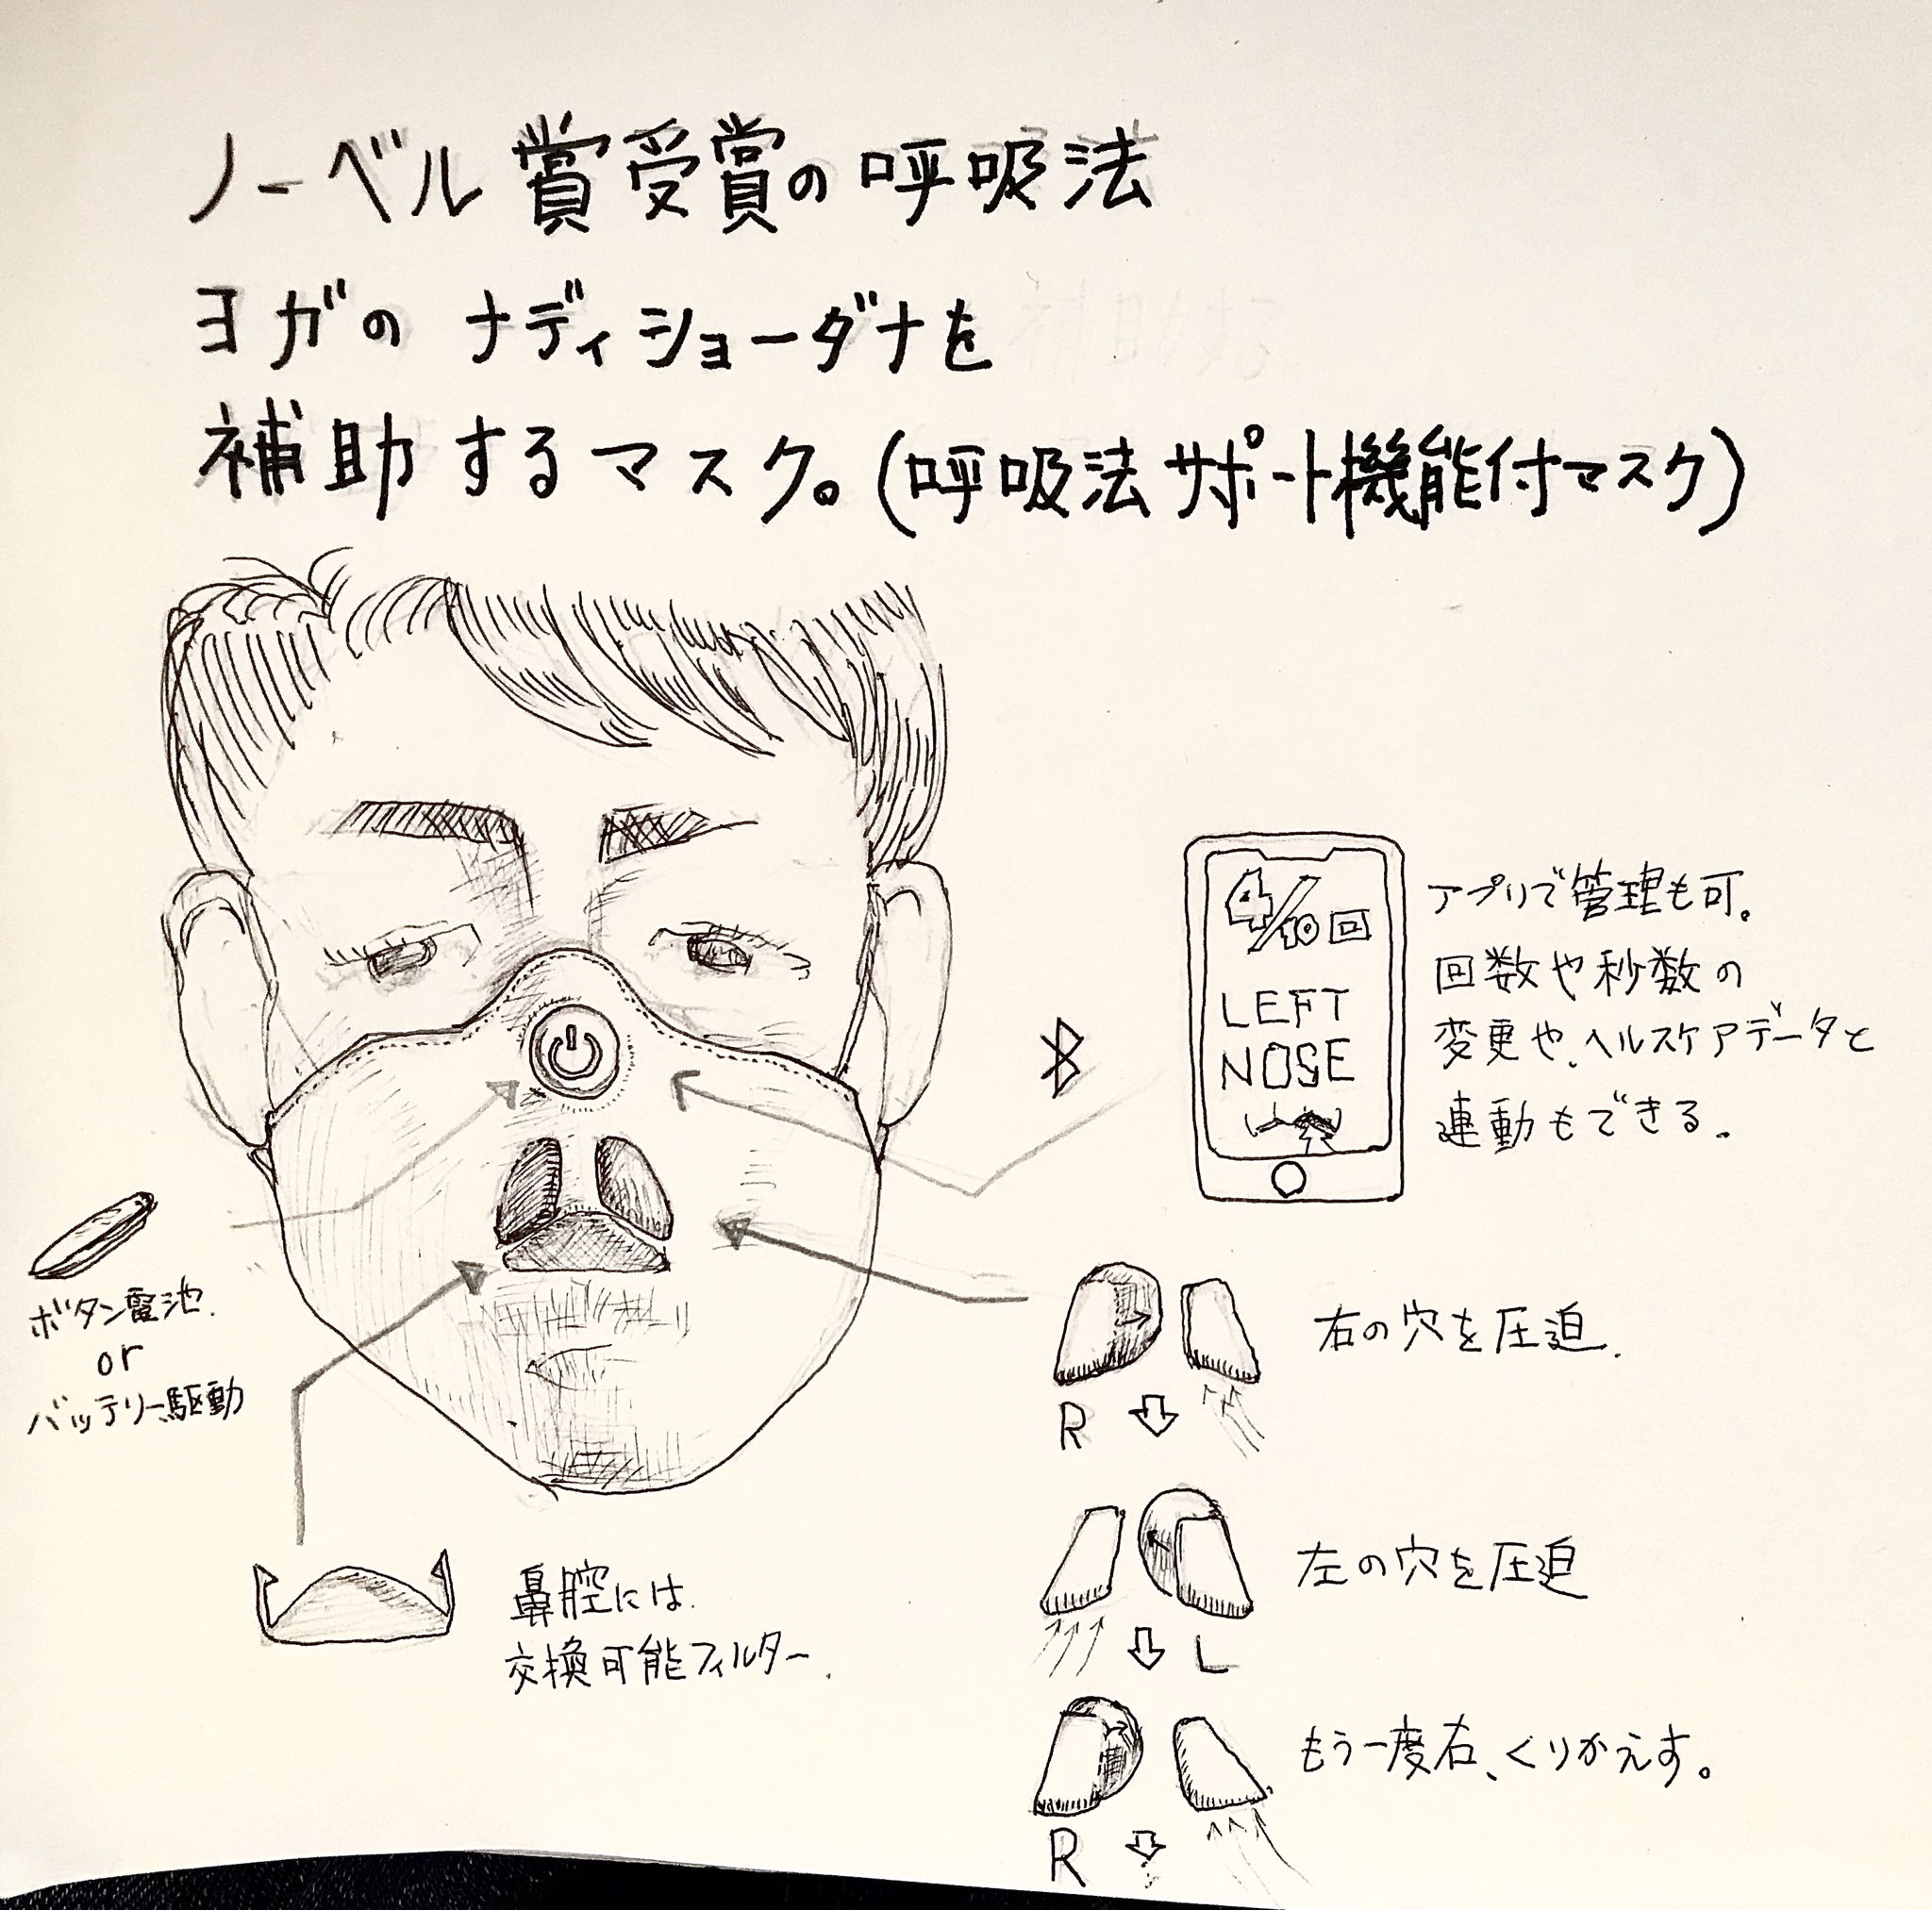 ノーベル賞受賞の呼吸法
ヨガの ナディショーダナを
補助するマスク。(呼吸法サポート機能付マスク)
4/10回
LEFT
NOSE
アプリで管理も可。
回数や秒数の
変更や、ヘルスケアデータと
連動もできる。
ボタン電池.
or
バッテリー駆動
鼻腔には.
交換可能フィルター.
右の穴を圧迫.
R
左の穴を圧迫
L
もう一度右、くりかえす。
R